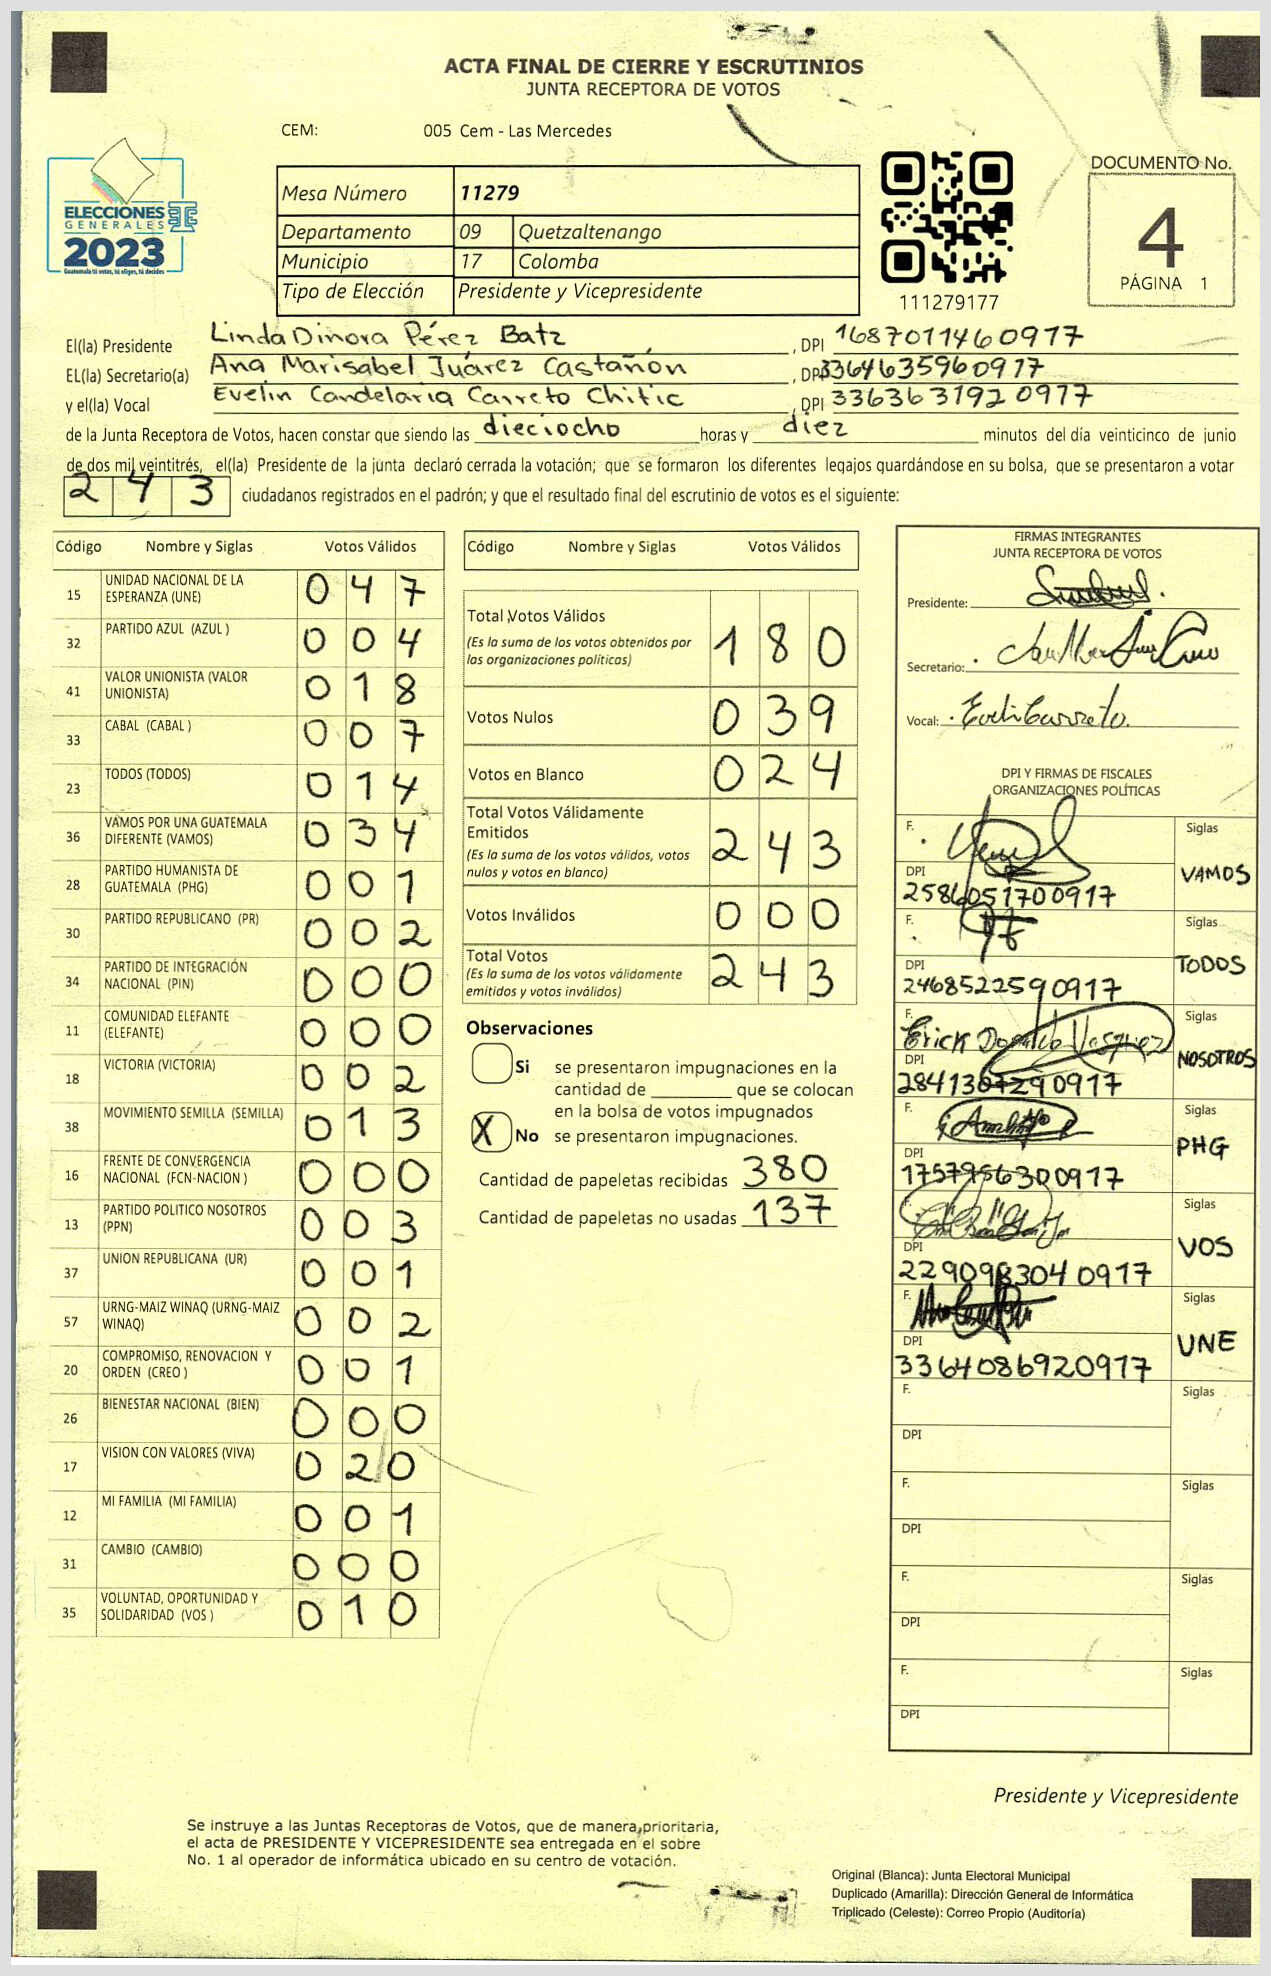 ACTA FINAL DE CIERRE Y ESCRUTINIOS
JUNTA RECEPTORA DE VOTOS
CEM: 005 Cem - Las Mercedes
ELECCIONES
GENERALES
2023
Guatemala tú votas, tú eliges, tú decides
Mesa Número 11279
Departamento 09 Quetzaltenango
Municipio 17 Colomba
Tipo de Elección Presidente y Vicepresidente
111279177
DOCUMENTO No.
4
PÁGINA 1
El(la) Presidente Linda Dinora Pérez Batz, DPI 1687011460917
EL(la) Secretario(a) Ana Marisabel Juárez Castañón, DPI 3364635960917
y el(la) Vocal Evelin Candelaria Carreto Chitic, DPI 3363631920917
de la Junta Receptora de Votos, hacen constar que siendo las dieciocho horas y diez minutos del día veinticinco de junio
de dos mil veintitrés, el(la) Presidente de la junta declaró cerrada la votación; que se formaron los diferentes legajos guardándose en su bolsa, que se presentaron a votar
243 ciudadanos registrados en el padrón; y que el resultado final del escrutinio de votos es el siguiente:
Código Nombre y Siglas Votos Válidos
15 UNIDAD NACIONAL DE LA ESPERANZA (UNE) 047
32 PARTIDO AZUL (AZUL ) 004
41 VALOR UNIONISTA (VALOR UNIONISTA) 018
33 CABAL (CABAL ) 007
23 TODOS (TODOS) 014
36 VAMOS POR UNA GUATEMALA DIFERENTE (VAMOS) 034
28 PARTIDO HUMANISTA DE GUATEMALA (PHG) 001
30 PARTIDO REPUBLICANO (PR) 002
34 PARTIDO DE INTEGRACIÓN NACIONAL (PIN) 000
11 COMUNIDAD ELEFANTE (ELEFANTE) 000
18 VICTORIA (VICTORIA) 002
38 MOVIMIENTO SEMILLA (SEMILLA) 013
16 FRENTE DE CONVERGENCIA NACIONAL (FCN-NACION ) 000
13 PARTIDO POLITICO NOSOTROS (PPN) 003
37 UNION REPUBLICANA (UR) 001
57 URNG-MAIZ WINAQ (URNG-MAIZ WINAQ) 002
20 COMPROMISO, RENOVACION Y ORDEN (CREO ) 001
26 BIENESTAR NACIONAL (BIEN) 000
17 VISION CON VALORES (VIVA) 020
12 MI FAMILIA (MI FAMILIA) 001
31 CAMBIO (CAMBIO) 000
35 VOLUNTAD, OPORTUNIDAD Y SOLIDARIDAD (VOS ) 010
Código Nombre y Siglas Votos Válidos
Total Votos Válidos 180
(Es la suma de los votos obtenidos por
las organizaciones políticas)
Votos Nulos 039
Votos en Blanco 024
Total Votos Válidamente
Emitidos 243
(Es la suma de los votos válidos, votos
nulos y votos en blanco)
Votos Inválidos 000
Total Votos 243
(Es la suma de los votos válidamente
emitidos y votos inválidos)
Observaciones
Si se presentaron impugnaciones en la
cantidad de ________ que se colocan
en la bolsa de votos impugnados
X No se presentaron impugnaciones.
Cantidad de papeletas recibidas 380
Cantidad de papeletas no usadas 137
FIRMAS INTEGRANTES
JUNTA RECEPTORA DE VOTOS
Presidente:
Secretario:
Vocal: Evelin Carreto.
DPI Y FIRMAS DE FISCALES
ORGANIZACIONES POLÍTICAS
F. Siglas
VAMOS
DPI
2586051700917
F. Siglas
TODOS
DPI
2468522590917
F. Erick Donaldo Vasquez Siglas
NOSOTROS
DPI
2841307290917
F. Siglas
PHG
DPI
1757956300917
F. Siglas
VOS
DPI
2290983040917
F. Siglas
UNE
DPI
3364086920917
F. Siglas
DPI
F. Siglas
DPI
F. Siglas
DPI
F. Siglas
DPI
Presidente y Vicepresidente
Se instruye a las Juntas Receptoras de Votos, que de manera prioritaria,
el acta de PRESIDENTE Y VICEPRESIDENTE sea entregada en el sobre
No. 1 al operador de informática ubicado en su centro de votación.
Original (Blanca): Junta Electoral Municipal
Duplicado (Amarilla): Dirección General de Informática
Triplicado (Celeste): Correo Propio (Auditoría)